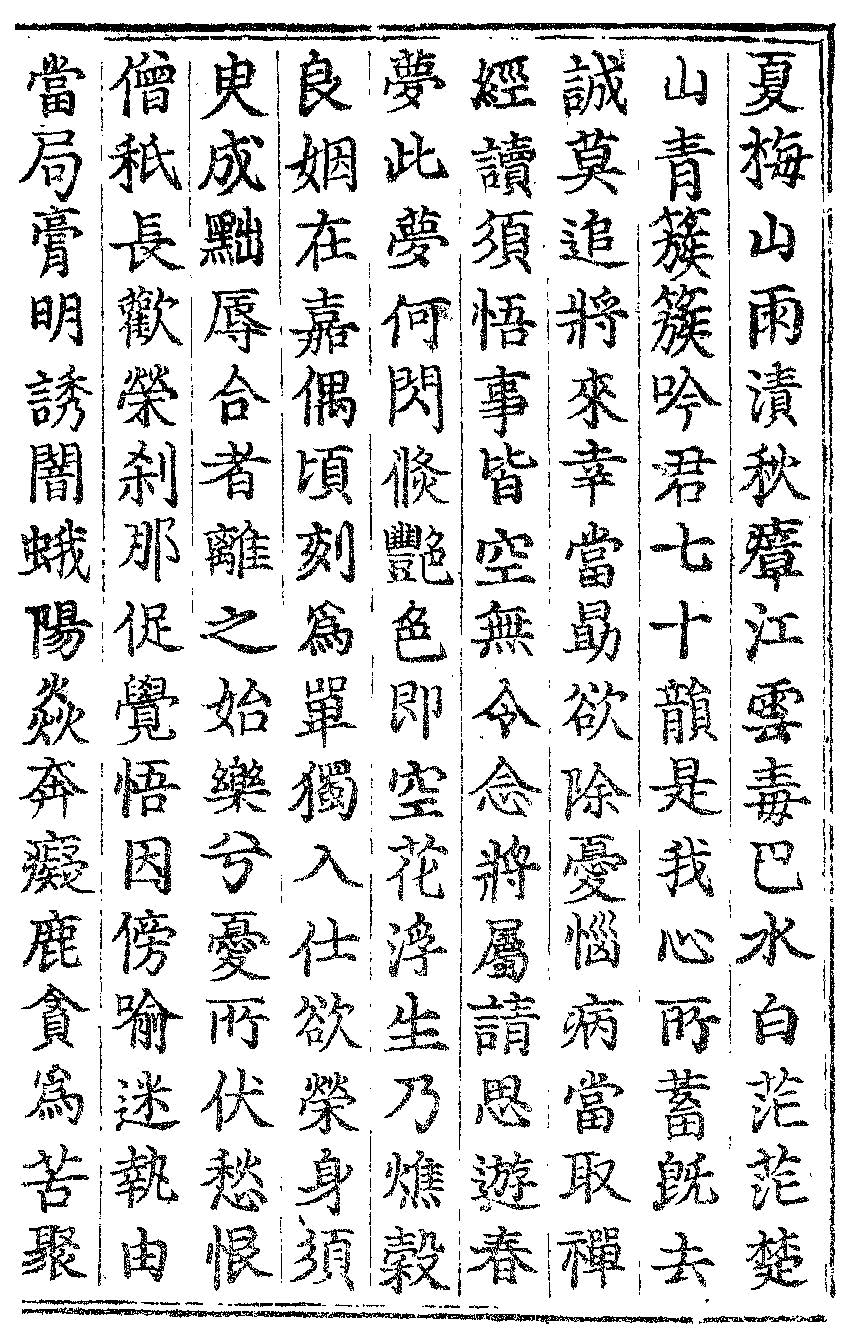 夏梅山雨漬秋瘴江雲毒巴水白茫茫楚
山青簇簇吟君七十韻是我心所蓄旣去
誠莫追將來幸當勗欲除憂惱病當取禪
經讀須悟事皆空無令念將屬請思遊春
夢此夢何閃倐艷色即空花浮生乃燋榖
良姻在嘉偶頃刻爲單獨入仕欲榮身須
臾成黜辱合者離之始樂兮憂所伏愁恨
僧秖長歡榮刹那促覺悟因傍喻迷執由
當局膏明誘闇蛾陽焱奔癡鹿貪爲苦聚